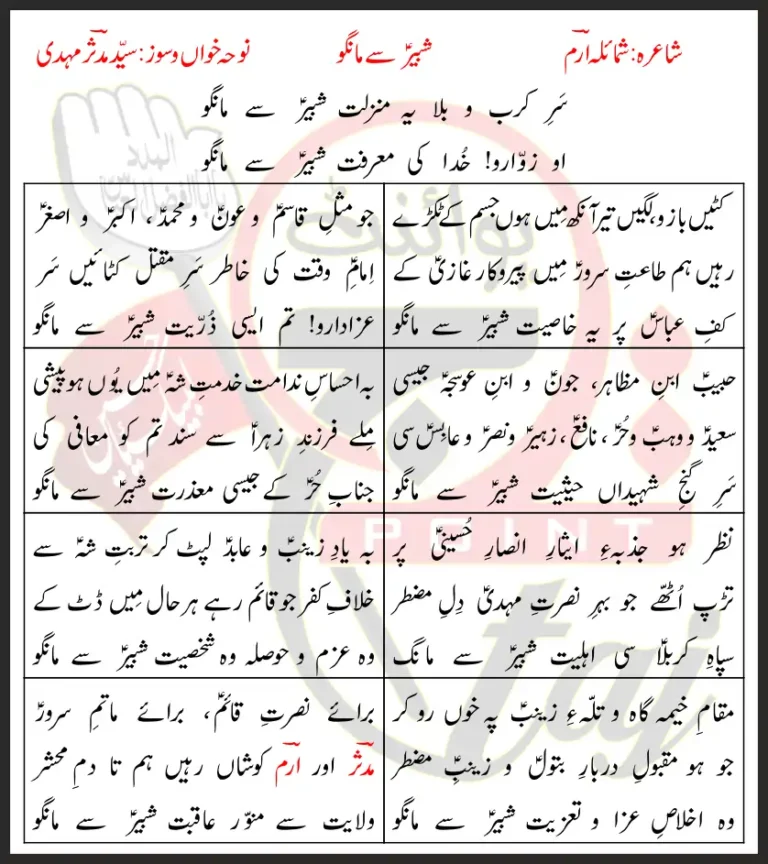 شاعرہ: شمائلہ ارؔم شبیرؑ سے مانگو نوحہ خواں و سوز: سیّد مدثرؔ مہدی
سَرِ کرب و بلا یہ منزلت شبیرؑ سے مانگو
او زوّارو! خُدا کی معرفت شبیرؑ سے مانگو
کٹیں بازو، لگیں تیر آنکھ میں ہوں جسم کے ٹکڑے
رہیں ہم طاعتِ سرورؑ میں پیروکار غازیؑ کے
کفِ عباسؑ پر یہ خاصیت شبیرؑ سے مانگو
جو مثلِ قاسمؑ و عونؑ و محمدؑ، اکبرؑ و اصغرؑ
اِمامِؑ وقت کی خاطر سَرِ مقتل کٹائیں سَر
عزادارو! تم ایسی ذُرّیت شبیرؑ سے مانگو
حبیبؑ ابنِ مظاہر، جونؑ و ابنِ عوسجہؑ جیسی
سعیدؑ و وہبؑ و حُرؑ، نافعؑ، زہیرؑ و نصرؑ و عابسؑ سی
سَرِ گنجِ شہیداں حیثیت شبیرؑ سے مانگو
بہ احساسِ ندامت خدمتِ شہؑ میں یُوں ہو پیشی
مِلے فرزندِ زہراؑ سے سند تم کو معافی کی
جنابِ حُرؑ کے جیسی معذرت شبیرؑ سے مانگو
نظر ہو جذبہءِ ایثارِ انصارِ حُسینیؑ پر
تڑپ اُٹھّے جو بہرِ نصرتِ مہدیؑ دِلِ مضطر
سپاہِ کربلاؑ سی اہلیت شبیرؑ سے مانگ
بہ یادِ زینبؑ و عابدؑ لپٹ کر تربتِ شہؑ سے
خلافِ کفر جو قائم رہے ہر حال میں ڈٹ کے
وہ عزم و حوصلہ وہ شخصیت شبیرؑ سے مانگو
مقامِ خیمہ گاہ و تلّہءِ زینبؑ پہ خوں رو کر
جو ہو مقبولِ دربارِ بتولؑ و زینبِؑ مضطر
وہ اخلاصِ عزا و تعزیت شبیرؑ سے مانگو
برائے نصرتِ قائمؑ، برائے ماتمِ سرورؑ
مدثرؔ اور ارؔم کوشاں رہیں ہم تا دمِ محشر
ولایت سے منوّر عاقبت شبیرؑ سے مانگو
پوائنٹ
POINT
taj